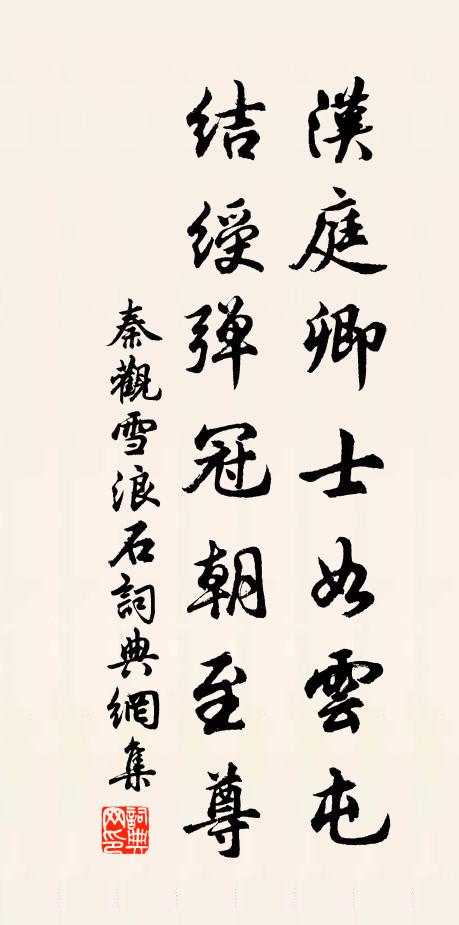 漢庭卿士如雲屯
結綬彈冠朝至尊
秦觀雪浪石詞典網集
詞典
網印